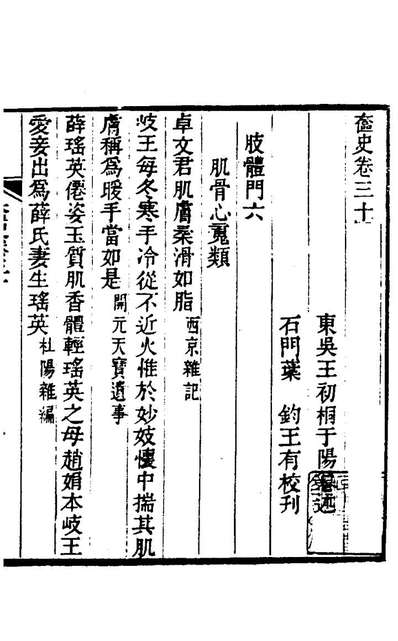 奩史卷三十
東吳王初桐于陽
石門葉 鈞王有校刊
肢體門六
肌骨心䰟類
卓文君肌膚柔滑如脂西京雜記
岐王每冬寒手冷從不近火惟於妙妓懷中揣其肌
膚稱為暖手當如是開元天寶遺事
薛瑤英僊姿玉質肌香體輕瑤英之母趙娟本岐王
愛妾出為薛氏妻生瑤英杜陽雜編